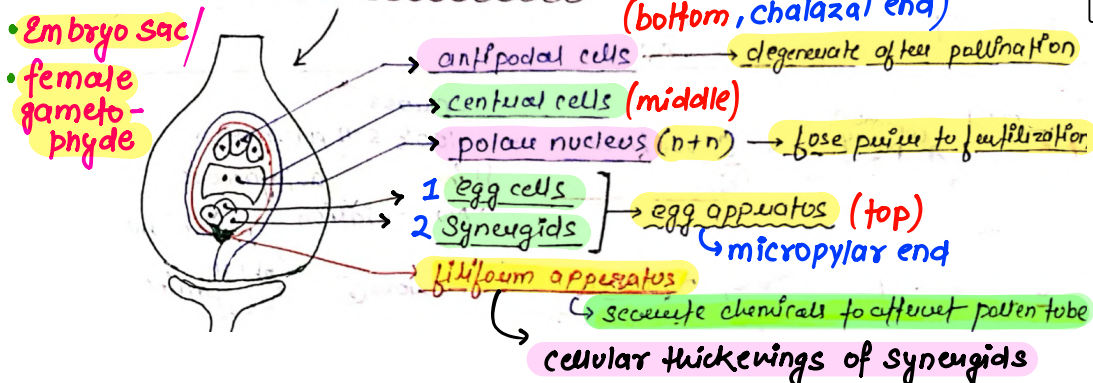 (bottom, chalazal end)
• Embryo sac/
• female
gameto-
phyde
antipodal cells → degenerate after pollination
central cells (middle)
polar nucleus (n+n) → fose prior to fertilization
1 egg cells
2 Synergids
egg apparatus (top)
micropylar end
filiform apparatus
secrete chemicals to attract pollen tube
cellular thickenings of synergids